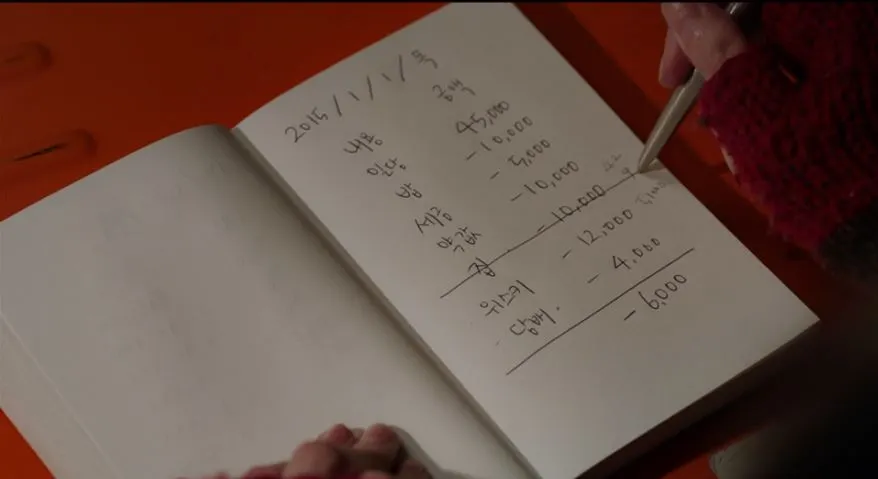 2015/1/1/목
내용 금액
일당 45,000
밥 -10,000
세금 -5,000
약값 -10,000
집 -10,000
위스키 -12,000
담배 -4,000
-6,000